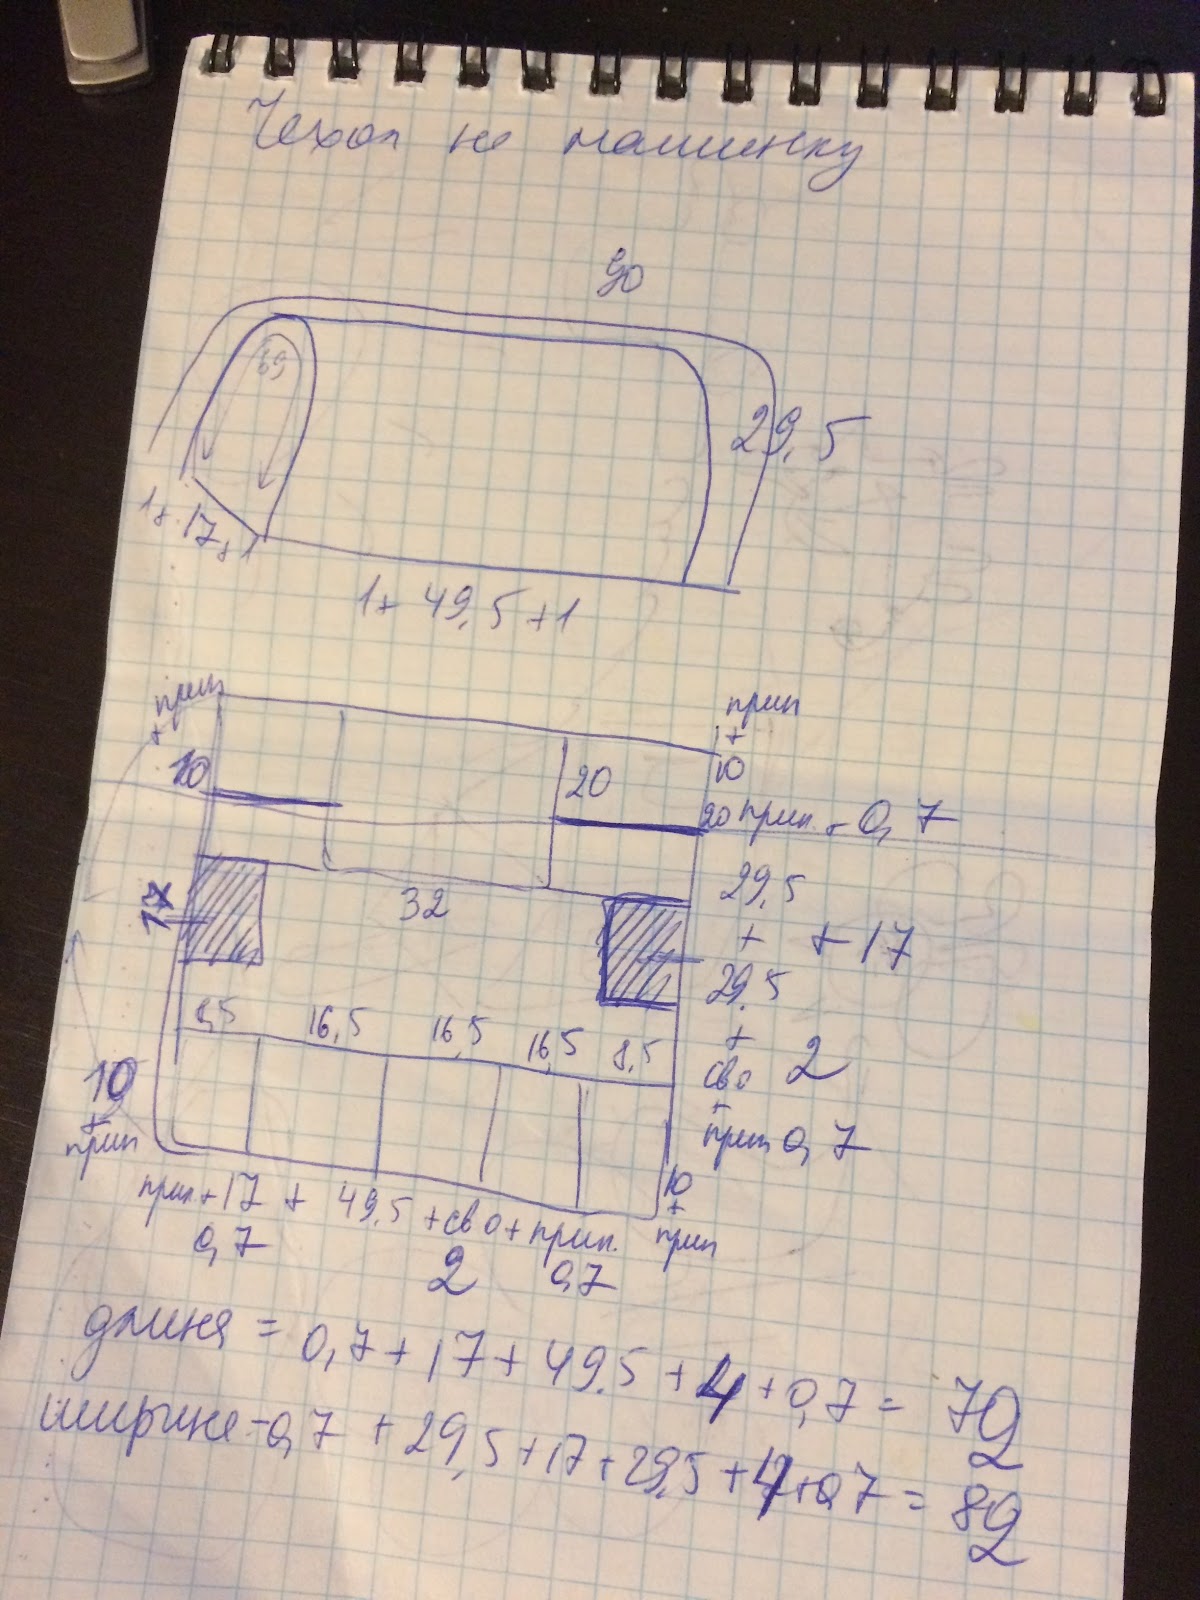 Чехол на машинку
90
69
29,5
1+ 17 +1
1+ 49,5 +1
+ прип
прип
+
10
10
20
20 прип. - 0,7
32
17
29,5
+
29,5
+
сво 2
+
прип 0,7
+ 17
8,5 16,5 16,5 16,5 8,5
10
+
прип
10
+
прип
прип + 17 + 49,5 + сво + прип.
0,7 2 0,7
длина = 0,7 + 17 + 49,5 + 4 + 0,7 = 72
ширина - 0,7 + 29,5 + 17 + 29,5 + 4 + 0,7 = 82